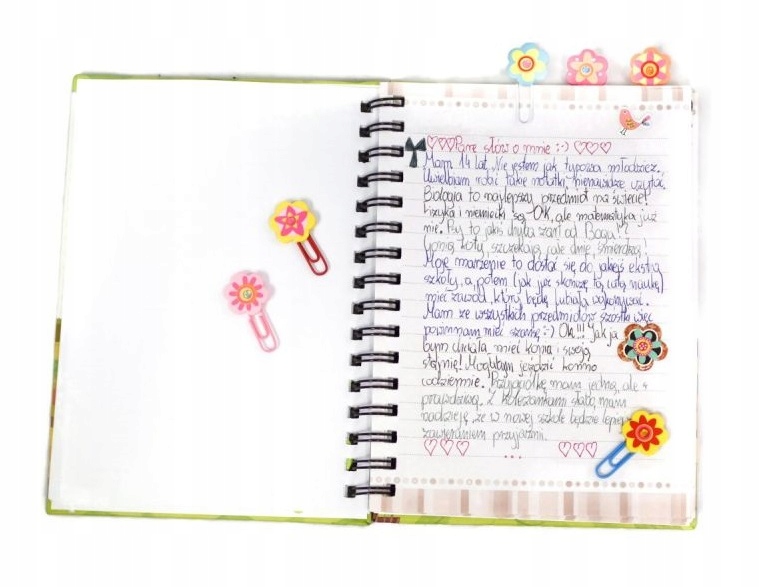 ♡♡♡ Parę słów o mnie :-) ♡♡♡
Mam 14 lat. Nie jestem jak typowa młodzież.
Uwielbiam robić takie notatki, nienawidzę czytać.
Biologia to najlepszy przedmiot na świecie!
Fizyka i niemiecki są OK, ale matematyka już
nie. Psy to jakiś chyba żart od Boga!
koty, szczekają całe dnie, śmierdzą!
Moje marzenie to dostać się do jakiejś ekstra
szkoły, a potem (jak już skończę tą całą naukę)
mieć zawód, który będę lubiała wykonywać.
Mam ze wszystkich przedmiotów szóstki więc
powinnam mieć szansę :-) Ok!!! Jak ja
bym chciała mieć konia i swoją
stajnię! Mogłabym jeździć konno
codziennie. Przyjaciółkę mam jedną, ale
prawdziwą. Z koleżankami słabo, mam
nadzieję, że w nowej szkole będzie lepiej z
zawieraniem przyjaźni.
♡♡♡ ... ♡♡♡